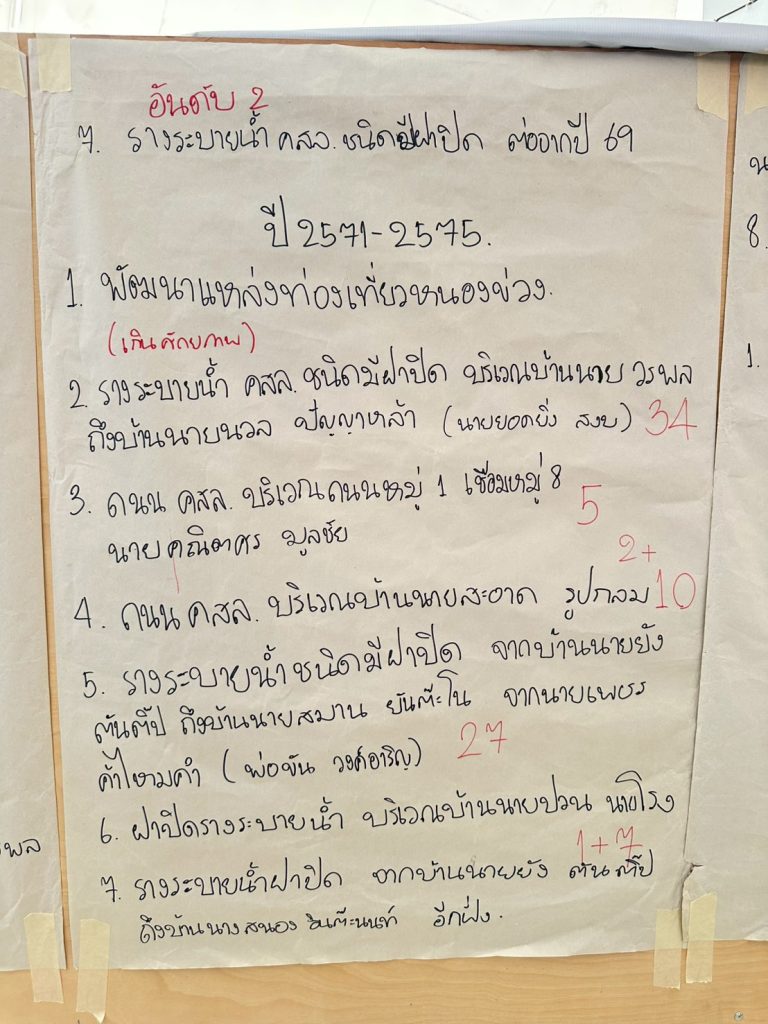 อันดับ 2
7. รางระบายน้ำ คสล. ชนิดมีฝาปิด ต่อจากปี 69
น
8.
ปี 2571-2575.
1. พัฒนาแหล่งท่องเที่ยวหนองข่วง.
(เกินศักยภาพ)
1.
2. รางระบายน้ำ คสล. ชนิดมีฝาปิด บริเวณบ้านนาย วรพล
ถึงบ้านนายนวล ปัญญาหล้า (นายยอดยิ่ง สงบ) 34
3. ถนน คสล. บริเวณถนนหมู่ 1 เชื่อมหมู่ 8
5
นาย มูลชัย
2+
4. ถนน คสล. บริเวณบ้านนายสะอาด รูปกลม 10
5. รางระบายน้ำชนิดมีฝาปิด จากบ้านนายยัง
ต้นตี๊ป ถึงบ้านนายสมาน ยันต๊ะโน จากนายเพชร
ค้าไหมคำ (พ่อขัน วงศ์อาริญ) 27
6. ฝาปิดรางระบายน้ำ บริเวณบ้านนายปวน นายโรง
1+7
พล
7. รางระบายน้ำฝาปิด จากบ้านนายยัง ต้นตี๊ป
ถึงบ้านนางสนอง อินต๊ะนนท์ อีกฝั่ง.